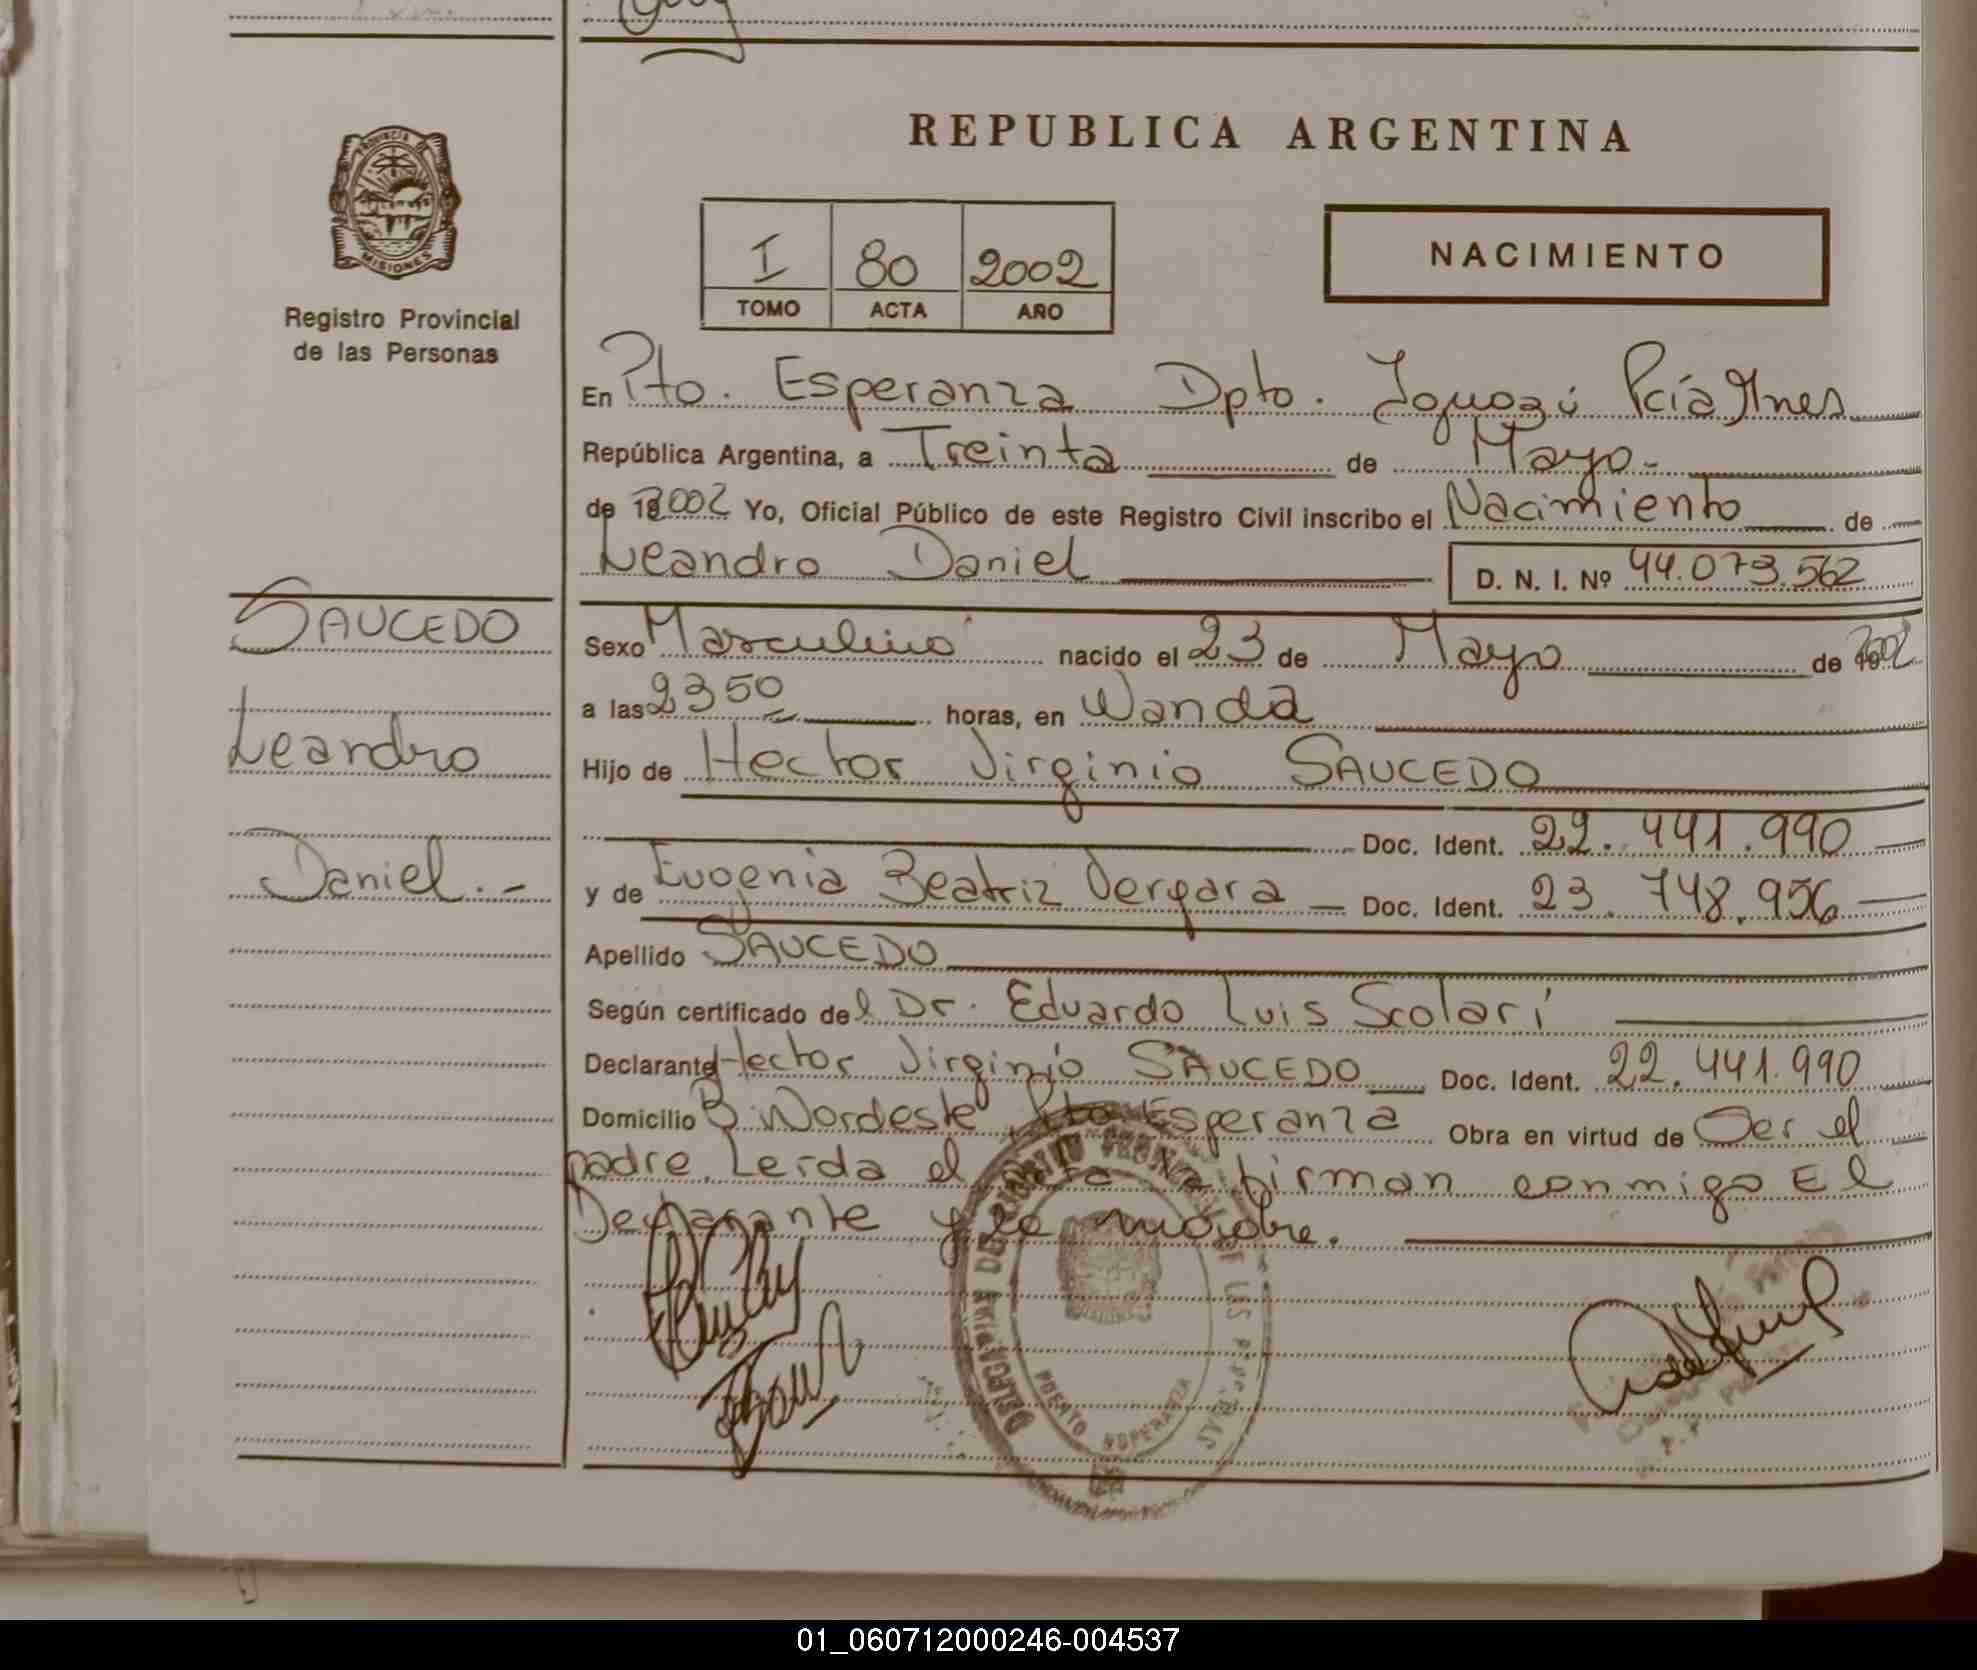 REPUBLICA ARGENTINA
PROVINCIA DE
MISIONES
Registro Provincial
de las Personas
I 80 2002
TOMO ACTA AÑO
NACIMIENTO
En Pto. Esperanza Dpto. Iguazú Pcía Mnes
República Argentina, a Treinta de Mayo.-
de 2002 Yo, Oficial Público de este Registro Civil inscribo el Nacimiento de
Leandro Daniel D. N. I. Nº 44.073.562
SAUCEDO
Leandro
Daniel.-
Sexo Masculino nacido el 23 de Mayo de 2002
a las 23 50 horas, en Wanda
Hijo de Hector Virginio SAUCEDO
Doc. Ident. 22.441.990
y de Eugenia Beatriz Vergara Doc. Ident. 23.748.956
Apellido SAUCEDO
Según certificado del Dr. Eduardo Luis Scolari
Declarante Hector Virginio SAUCEDO Doc. Ident. 22.441.990
Domicilio B. Nordeste Pto Esperanza Obra en virtud de Ser el
padre. Leida el acta la firman conmigo El
Declarante y la madre.
DELEGACION DE LAS PERSONAS
PUERTO ESPERANZA
01_060712000246-004537